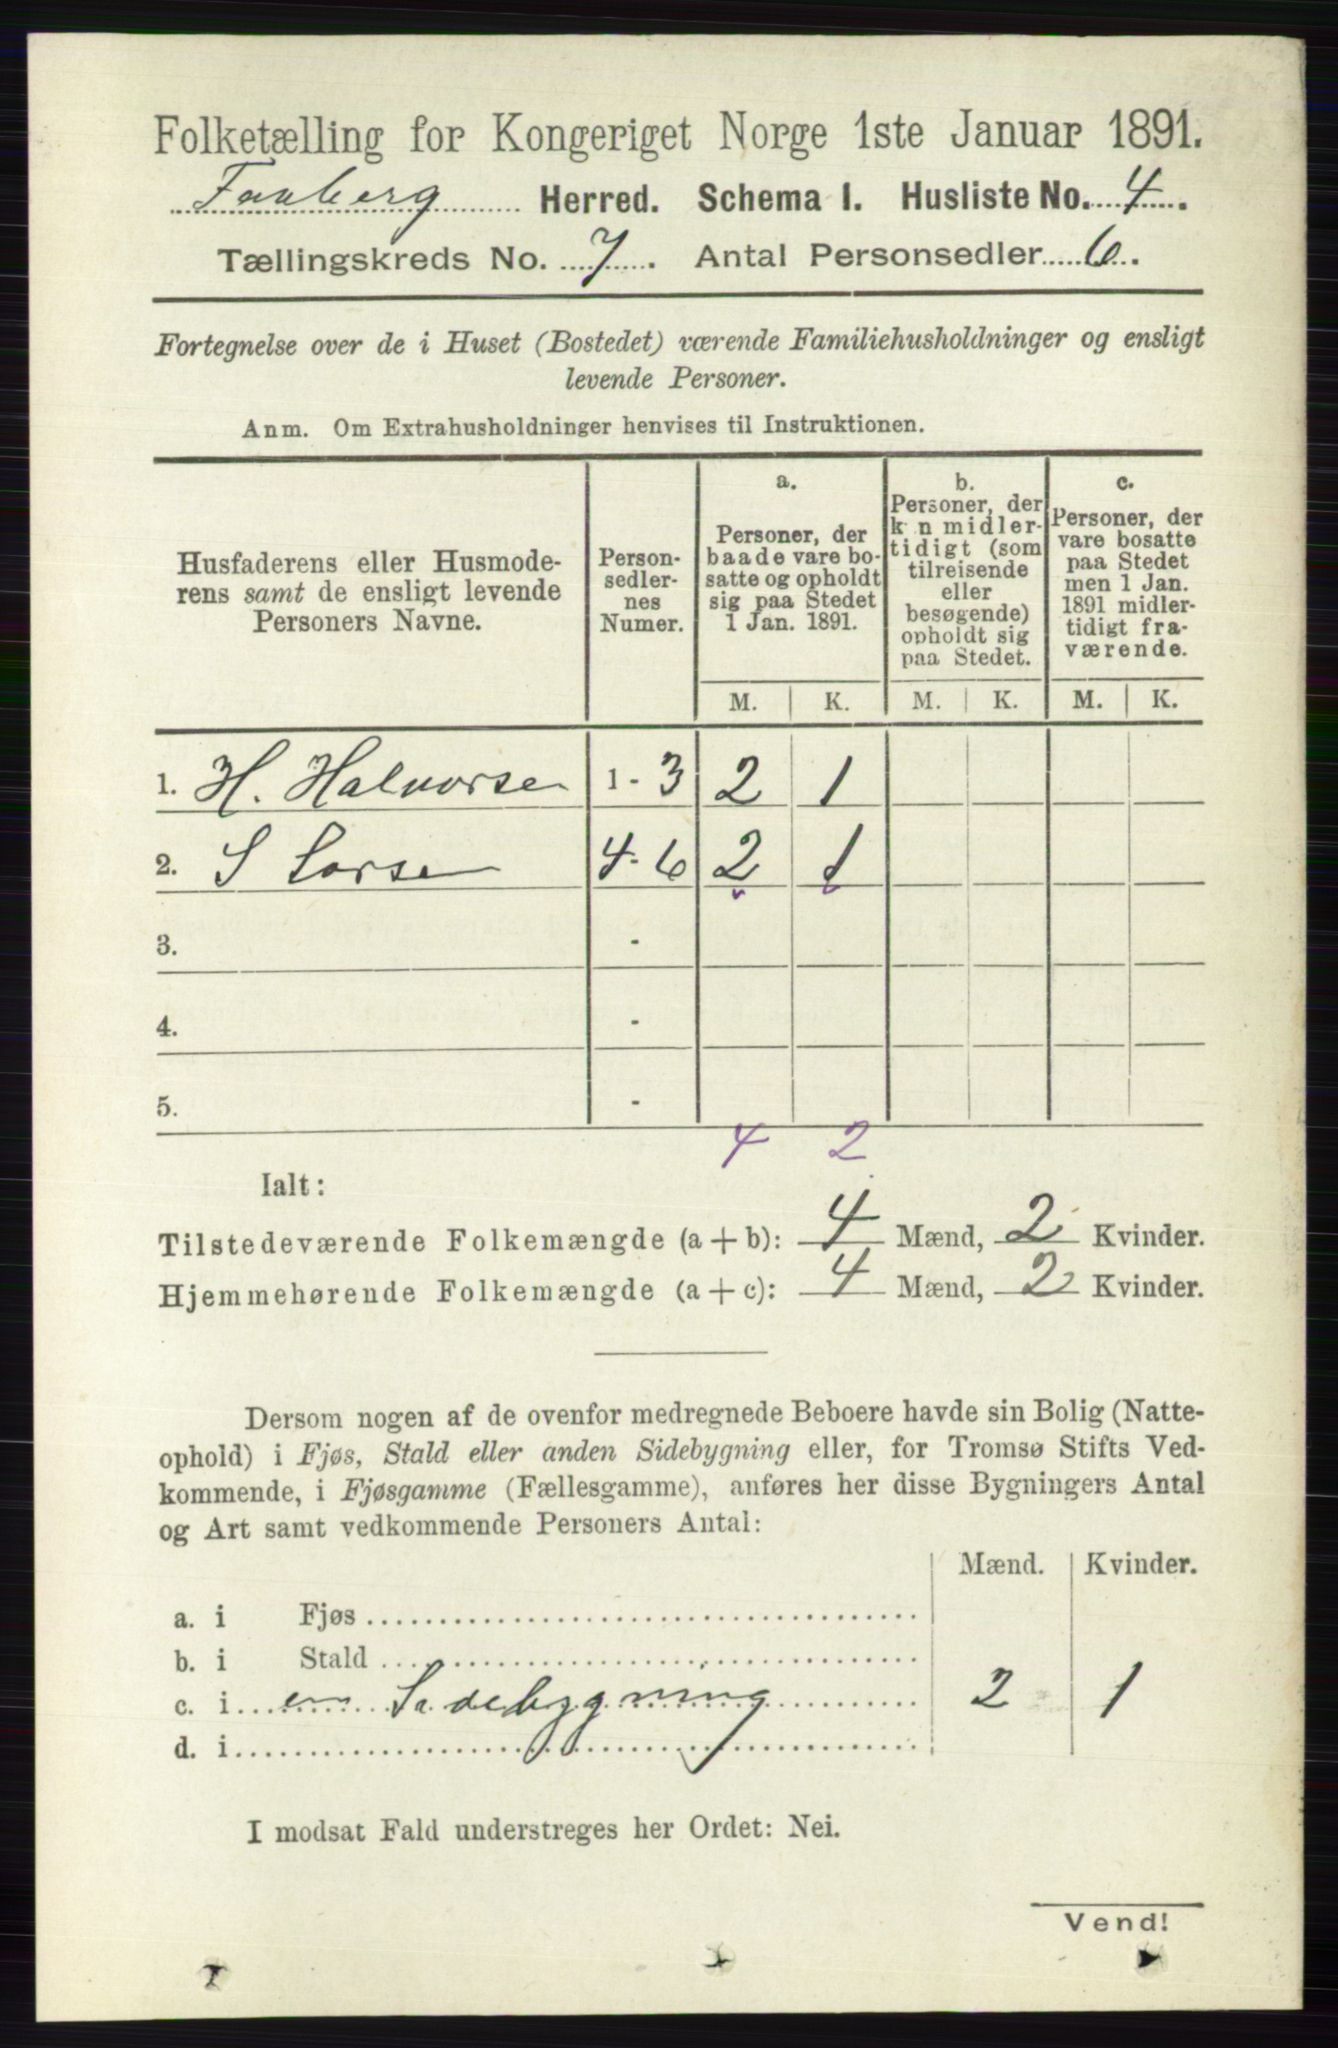 Folketælling for Kongeriget Norge 1ste Januar 1891.
Faaberg Herred. Schema I. Husliste No. 4.
Tællingskreds No. 7. Antal Personsedler 6.
Fortegnelse over de i Huset (Bostedet) værende Familiehusholdninger og ensligt
levende Personer.
Anm. Om Extrahusholdninger henvises til Instruktionen.
Husfaderens eller Husmode-
rens samt de ensligt levende
Personers Navne.
Person-
sedler-
nes
Numer.
a.
Personer, der
baade vare bo-
satte og opholdt
sig paa Stedet
1 Jan. 1891.
b.
Personer, der
k n midler-
tidigt (som
tilreisende
eller
besøgende)
opholdt sig
paa Stedet.
c.
Personer, der
vare bosatte
paa Stedet
men 1 Jan.
1891 midler-
tidigt fra-
værende.
M. K. M. K. M. K.
1. H. Halvorse 1 - 3 2 1
2. S Larse 4 - 6 2 1
3. -
4. -
5. -
4 2
Ialt:
Tilstedeværende Folkemængde (a + b): 4 Mænd, 2 Kvinder.
Hjemmehørende Folkemængde (a + c): 4 Mænd, 2 Kvinder.
Dersom nogen af de ovenfor medregnede Beboere havde sin Bolig (Natte-
ophold) i Fjøs, Stald eller anden Sidebygning eller, for Tromsø Stifts Ved-
kommende, i Fjøsgamme (Fællesgamme), anføres her disse Bygningers Antal
og Art samt vedkommende Personers Antal:
Mænd. Kvinder.
a. i Fjøs
b. i Stald
c. i en Sidebygning 2 1
d. i
I modsat Fald understreges her Ordet: Nei.
Vend!